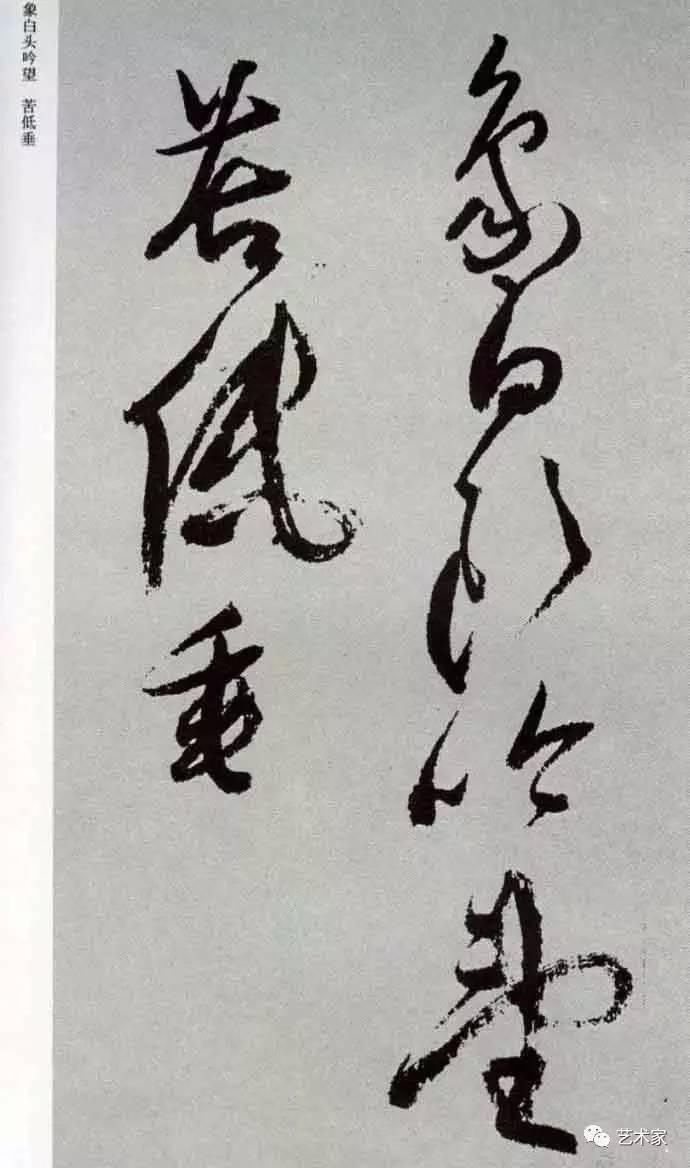 象白头吟望 苦低垂
象白頭吟望
苦低垂
艺术家